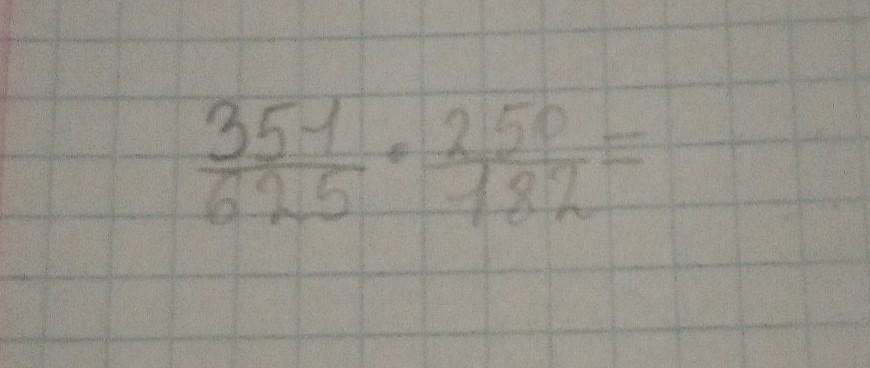 351/625 · 250/182 =